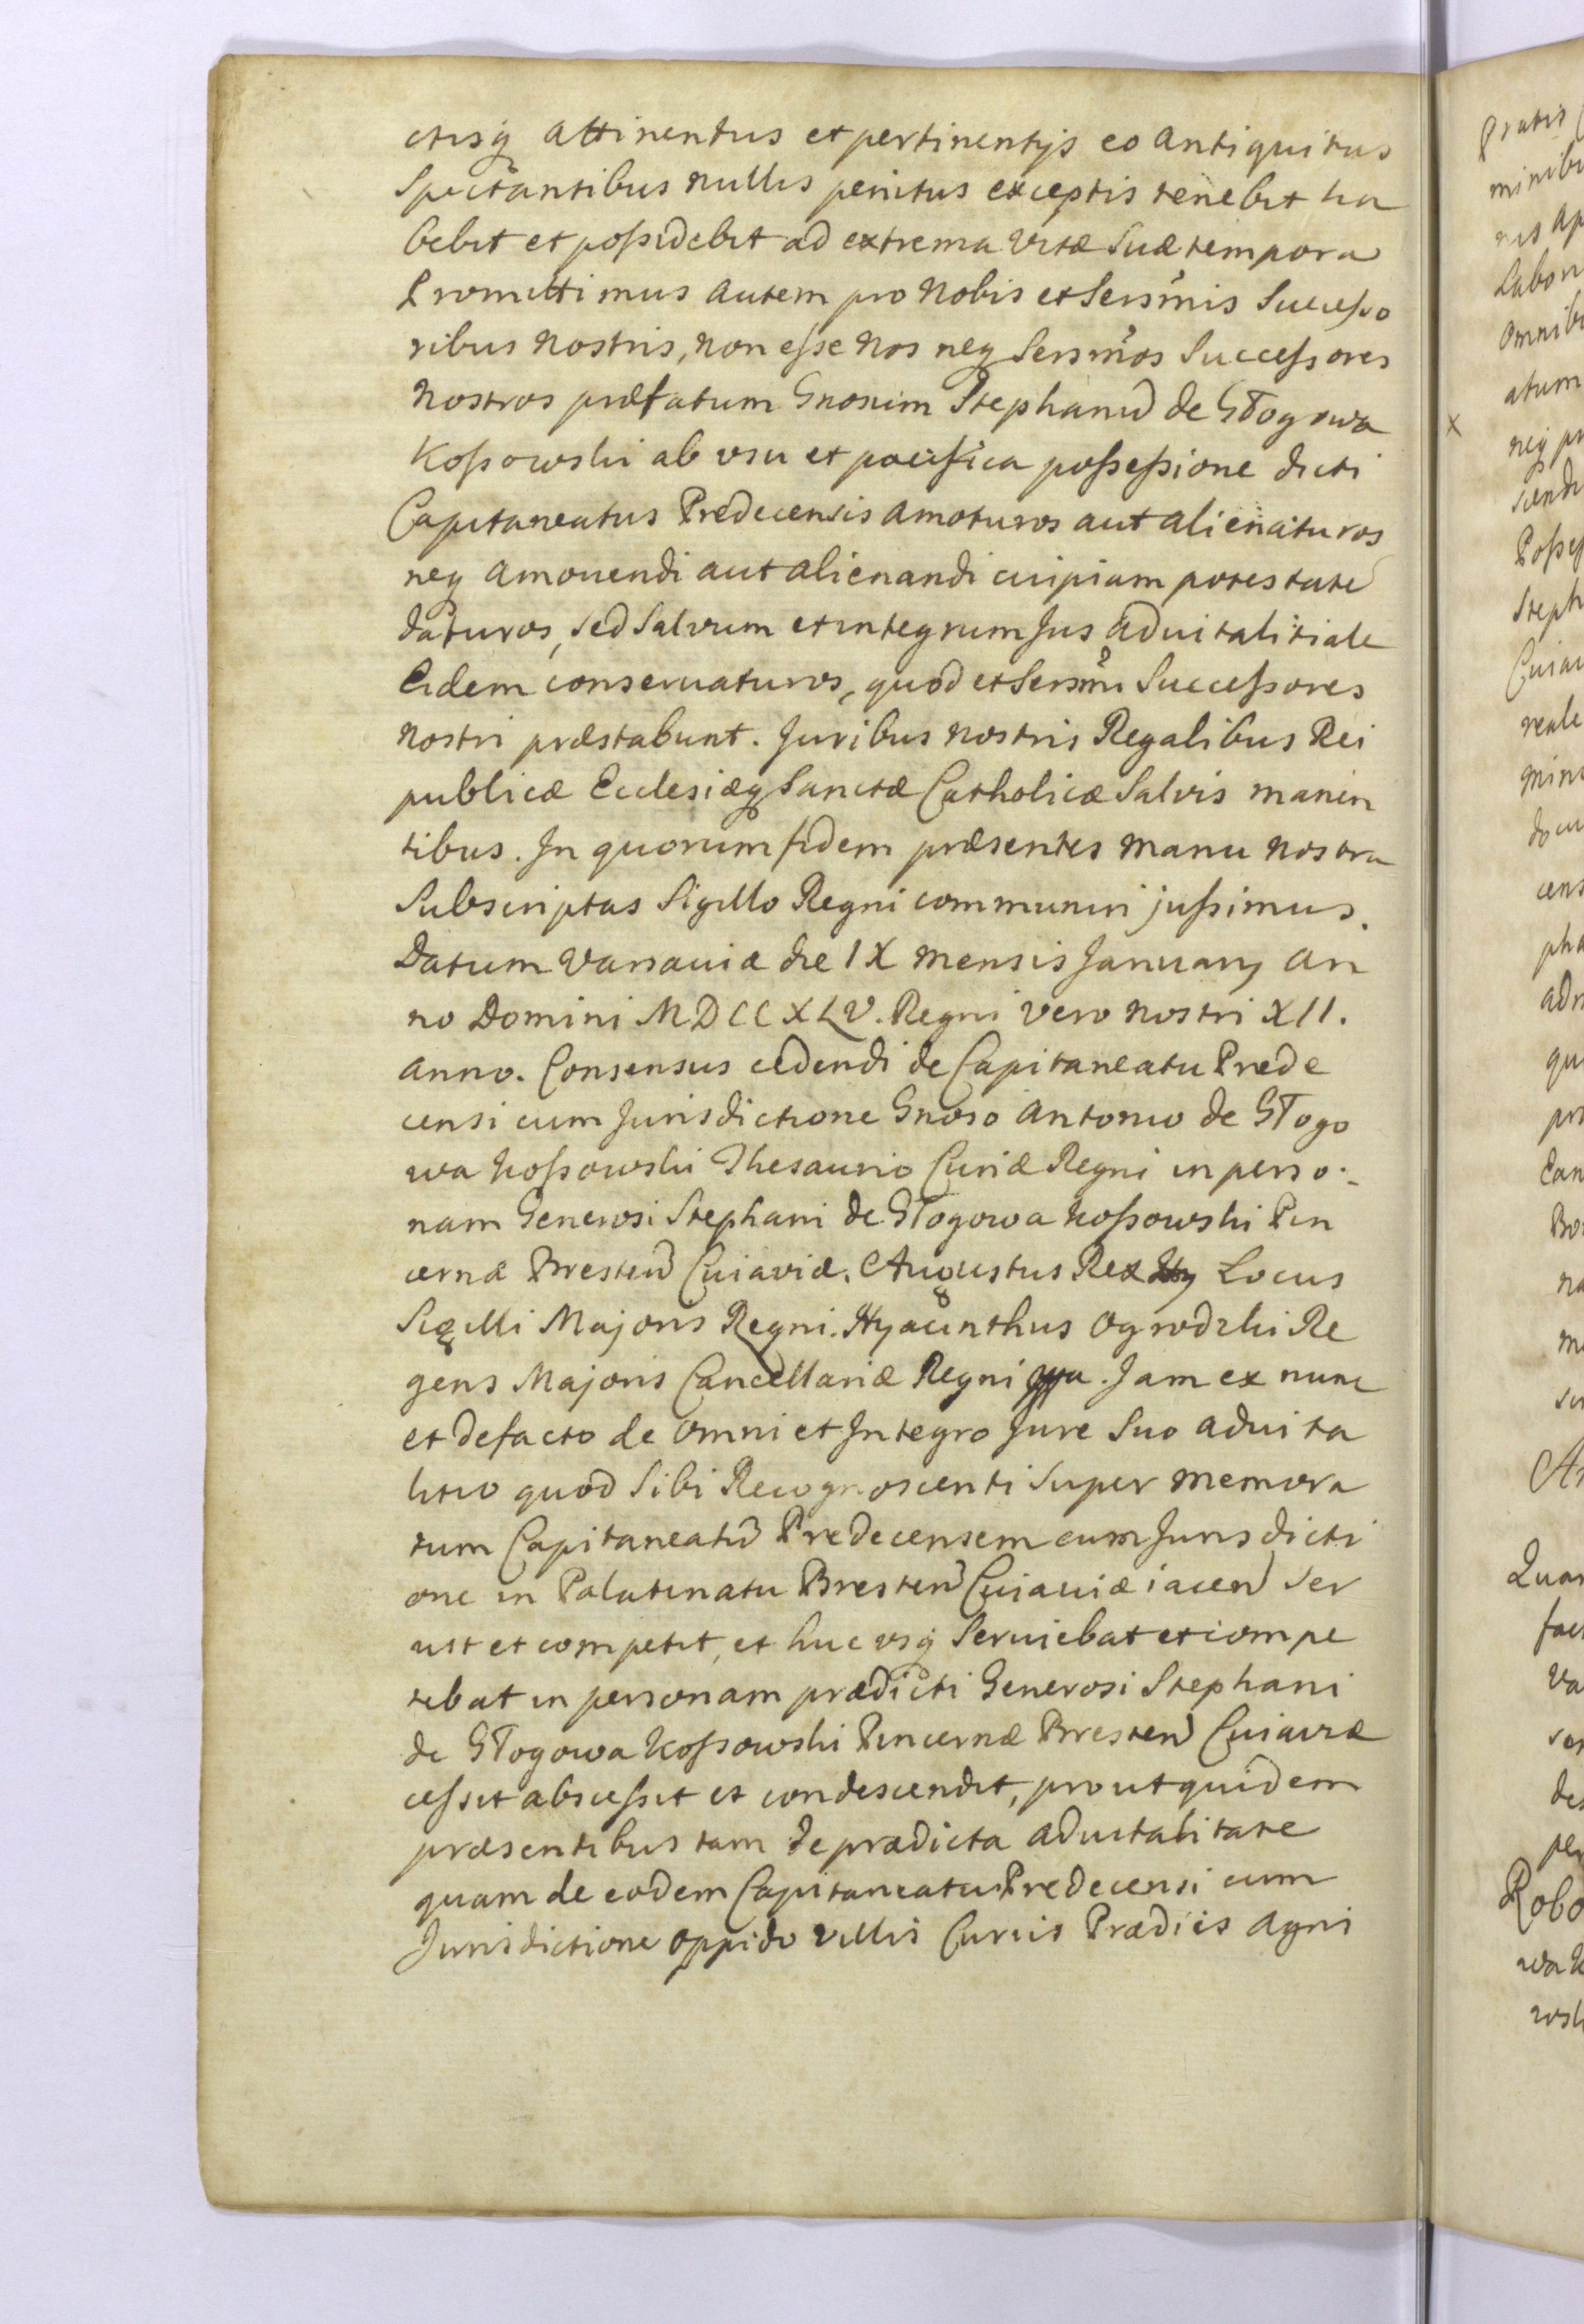 ctisq attinentus et pertinentijs eo antiquitus
Spectantibus nullis penitus exceptis tenebit ha
bebit et possidebit ad extrema vitæ suæ tempora
Promittimus autem pro Nobis et Sersmis Successo
ribus Nostris, non esse Nos neq Sersmos Successores
Nostros præfatum Gnosum Stephanu de Głogowa
Kossowski ab usu et pacifica possessione dicti
Capitaneatus Predecensis amoturos aut alienaturos
neq amouendi aut alienandi cuipiam potestate
daturos, sed Salvum et integrum Jus aduitalitiale
Eidem conseruaturos, quod et Sersmi Successores
Nostri præstabunt. Juribus nostris Regalibus Rei
publicæ Ecclesiæq Sanctæ Catholicæ Salvis manen
tibus. In quorum fidem præsentes manu nostra
Subscriptas Sigillo Regni communiri jussimus.
Datum Varsauiæ die IX mensis January an
no Domini MDCCXLV. Regni vero nostri XII.
anno. Consensus cedendi de Capitaneatu Prede
censi cum Jurisdictione Gnoso Antonio de Głogo
wa Kossowski Thesaurio Curiæ Regni in perso-
nam Generosi Stephani de Głogowa Kossowski Pin
cernæ Bresten Cuiaviæ. Augustus Rex Locus
Sigilli Majoris Regni. Hyacinthus Ogrodzki Re
gens Majoris Cancellariæ Regni mpa. Jam ex nunc
et defacto de omni et Integro Jure Suo aduita
litio quod Sibi Recognoscenti super memora
tum Capitaneatu Predecensem cum Jurisdicti
one in Palatinatu Bresten Cuiauiæ iacen Ser
uit et competit, et huc usq Seruiebat et compe
tebat in personam prædicti Generosi Stephani
de Głogowa Kossowski Pincernæ Bresten Cuiaviæ
cessit abscessit et condescendit, prout quidem
præsentibus tam de prædicta aduitalitate
quam de eodem Capitaneatu Predecensi cum
Jurisdictione oppido villis Curiis Prædiis Agni